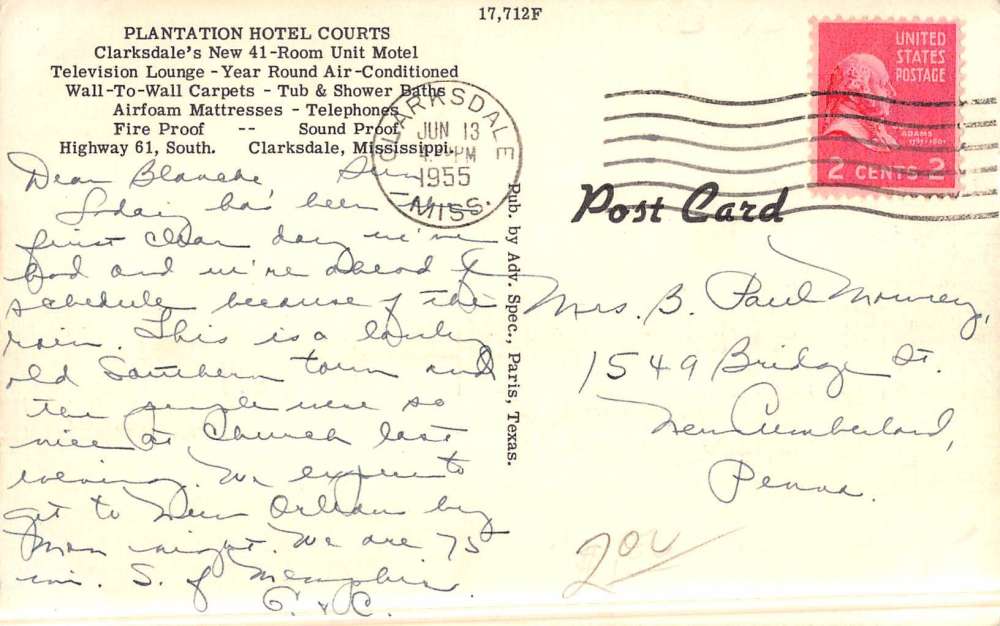 17,712F
PLANTATION HOTEL COURTS
Clarksdale's New 41-Room Unit Motel
Television Lounge - Year Round Air-Conditioned
Wall-To-Wall Carpets - Tub & Shower Baths
Airfoam Mattresses - Telephones
Fire Proof -- Sound Proof
Highway 61, South. Clarksdale, Mississippi.
CLARKSDALE
JUN 13
PM
1955
MISS.
UNITED
STATES
POSTAGE
ADAMS
2 CENTS 2
Post Card
Dear Blanche, Sun.
Today has been the
first clear day we've
had and we're ahead of
schedule because of the
rain. This is a lovely
old Southern town and
the people were so
nice at Church last
evening. We expect to
get to New Orleans by
Mon night. We are 75
mi. S. of Memphis.
G. & C.
Pub. by Adv. Spec., Paris, Texas.
Mrs. B. Paul Mowrey,
1549 Bridge St.
New Cumberland,
Penna.
200